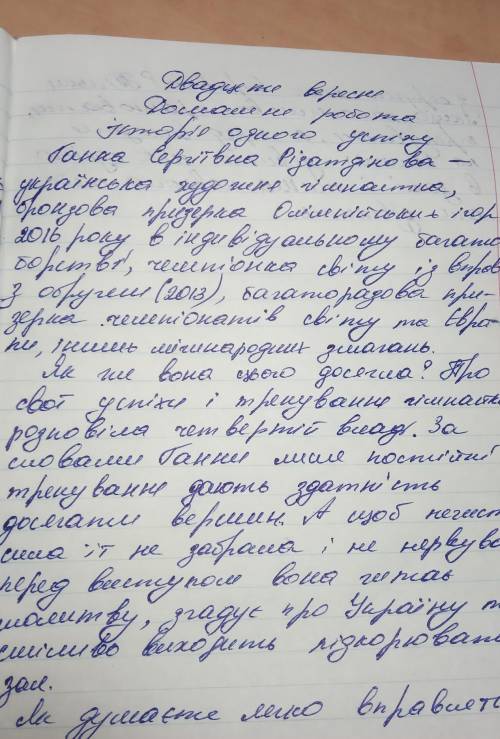 Двадцяте вересня
Домашня робота
Історія одного успіху
Ганна Сергіївна Різатдінова —
українська художня гімнастка,
бронзова призерка Олімпійських ігор
2016 року в індивідуальному багато
борстві, чемпіонка світу із вправ
з обручем (2013), багаторазова при-
зерка чемпіонатів світу та Євро
пи, інших міжнародних змагань.
Як же вона цього досягла? Про
свої успіхи і тренування гімнастка
розповіла четвертій владі. За
словами Ганни лише постійні
тренування дають здатність
досягати вершин. А щоб нечист
сила її не забрала і не нервува
перед виступом вона читає
молитву, згадує про Україну т
сміливо виходить підкорювати
зал.
Як думаєте легко вправляти